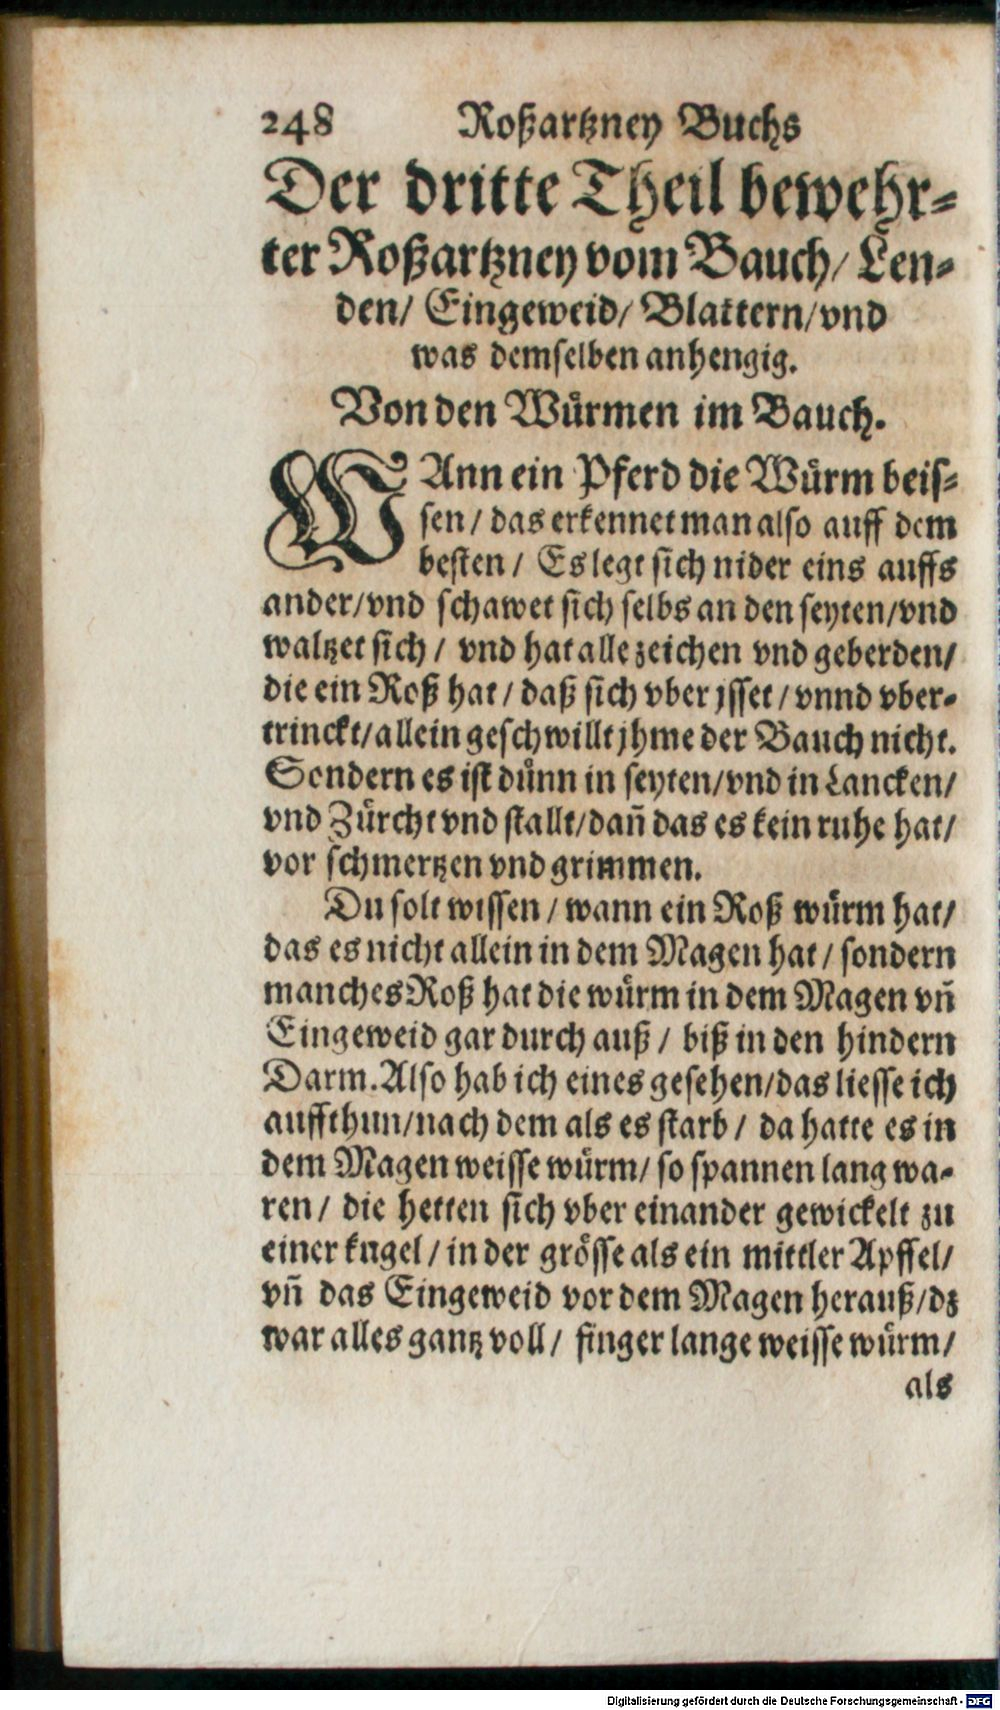 248 Roßartzney Buchs
Der dritte Theil bewehr-
ter Roßartzney vom Bauch/ Len-
den/ Eingeweid/ Blattern/ vnd
was demselben anhengig.
Von den Würmen im Bauch.
WAnn ein Pferd die Würm beis-
sen/ das erkennet man also auff dem
besten/ Es legt sich nider eins auffs
ander/ vnd schawet sich selbs an den seyten/ vnd
waltzet sich/ vnd hat alle zeichen vnd geberden/
die ein Roß hat/ daß sich vber jsset/ vnnd vber-
trinckt/ allein geschwillt jhme der Bauch nicht.
Sondern es ist dünn in seyten/ vnd in Lancken/
vnd Zürcht vnd stallt/ dañ das es kein ruhe hat/
vor schmertzen vnd grimmen.
Du solt wissen/ wann ein Roß würm hat/
das es nicht allein in dem Magen hat/ sondern
manches Roß hat die würm in dem Magen vñ
Eingeweid gar durch auß/ biß in den hindern
Darm. Also hab ich eines gesehen/ das liesse ich
auffthun/ nach dem als es starb/ da hatte es in
dem Magen weisse würm/ so spannen lang wa-
ren/ die hetten sich vber einander gewickelt zu
einer kugel/ in der grösse als ein mittler Apffel/
vñ das Eingeweid vor dem Magen herauß/ dz
war alles gantz voll/ finger lange weisse würm/
als
Digitalisierung gefördert durch die Deutsche Forschungsgemeinschaft - DFG